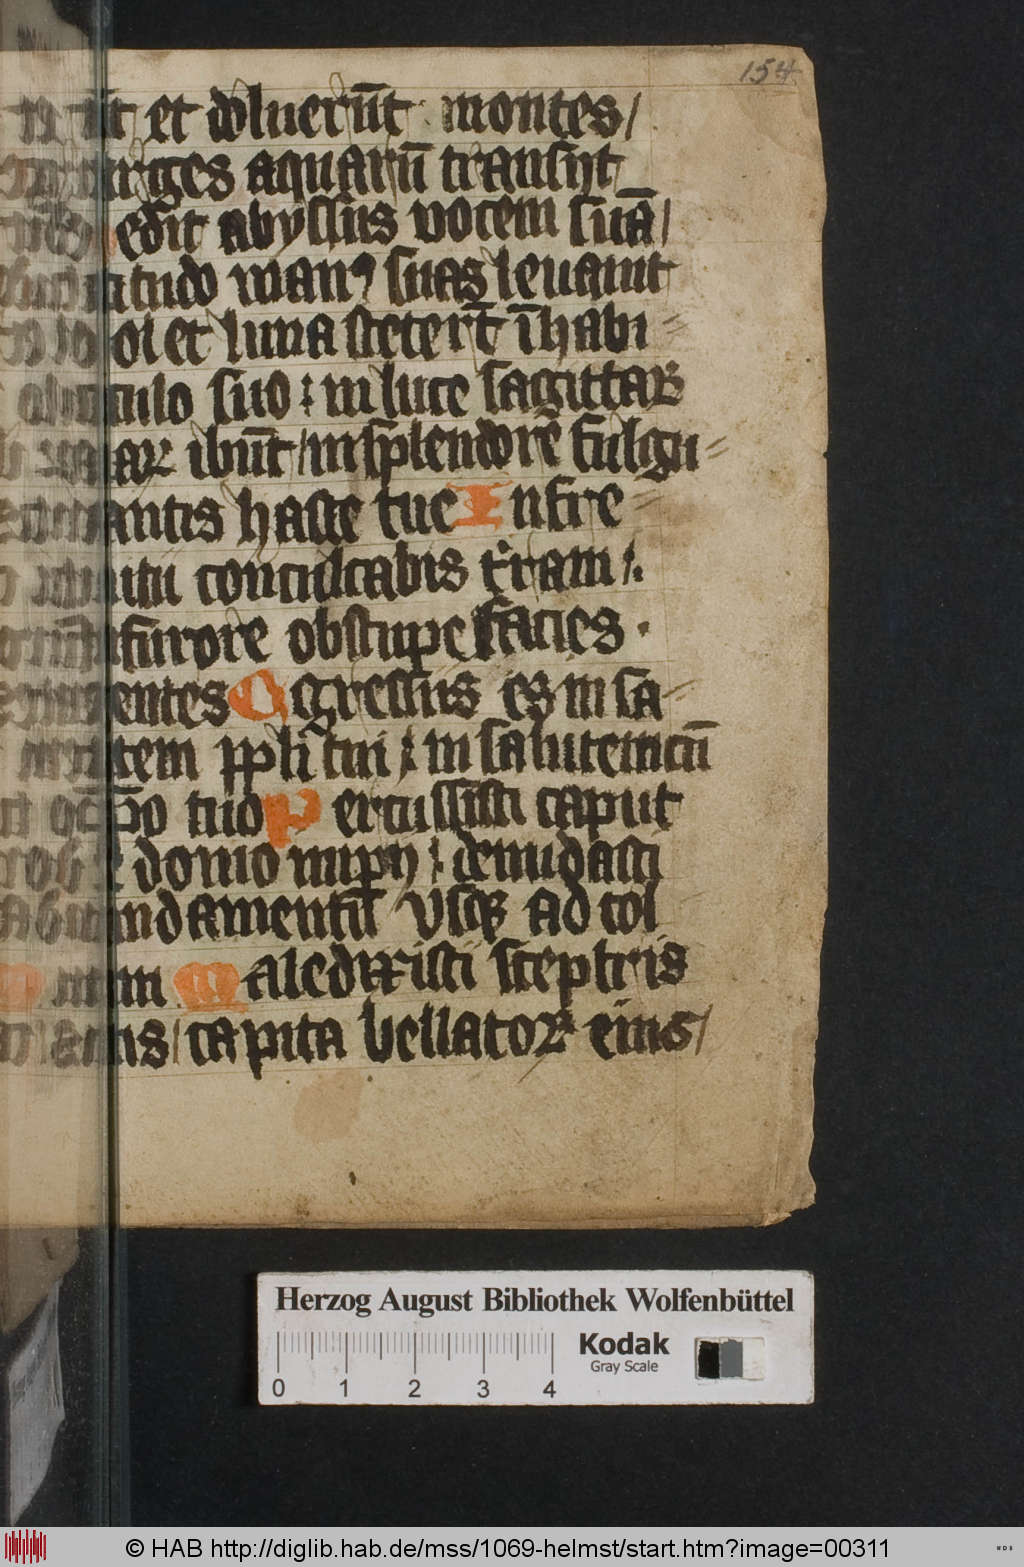 154
et doluerūt montes/
gurges aquarū transijt
edit abyssus vocem suā/
titudo manꝰ suas leuauit
sol et luna steterūt ī habi⸗
taculo suo : in luce sagittaꝝ
tuaꝝ ibūt / in splendore fulgu⸗
rantis haste tue In fre⸗
mitu conculcabis t'ram /.
furore obstupefacies ·
gentes Egressus es in sa⸗
lutem ppli tui : in salutem cū
xp̄o tuo Percussisti caput
de domo impij : denudasti
fundamentū vsqꝫ ad col
lum Maledixisti sceptris
eius / capita bellatoꝝ eius /
Herzog August Bibliothek Wolfenbüttel
Kodak
Gray Scale
0 1 2 3 4
© HAB http://diglib.hab.de/mss/1069-helmst/start.htm?image=00311